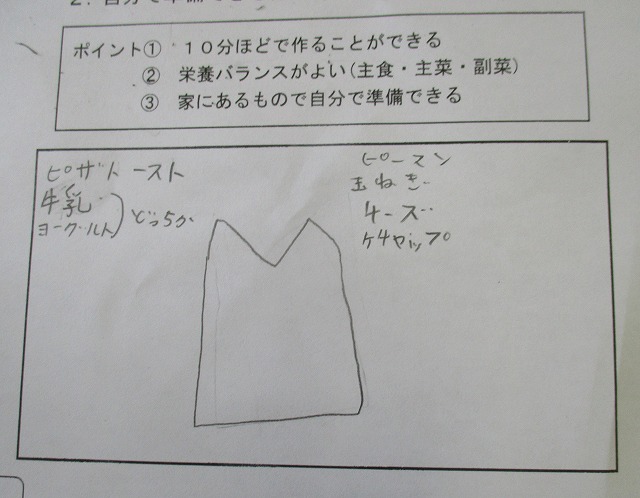 2. 自分で準備
ポイント① 10分ほどで作ることができる
② 栄養バランスがよい(主食・主菜・副菜)
③ 家にあるもので自分で準備できる
ピザトースト
牛乳
ヨーグルト
どっちか
ピーマン
玉ねぎ
チーズ
ケチャップ